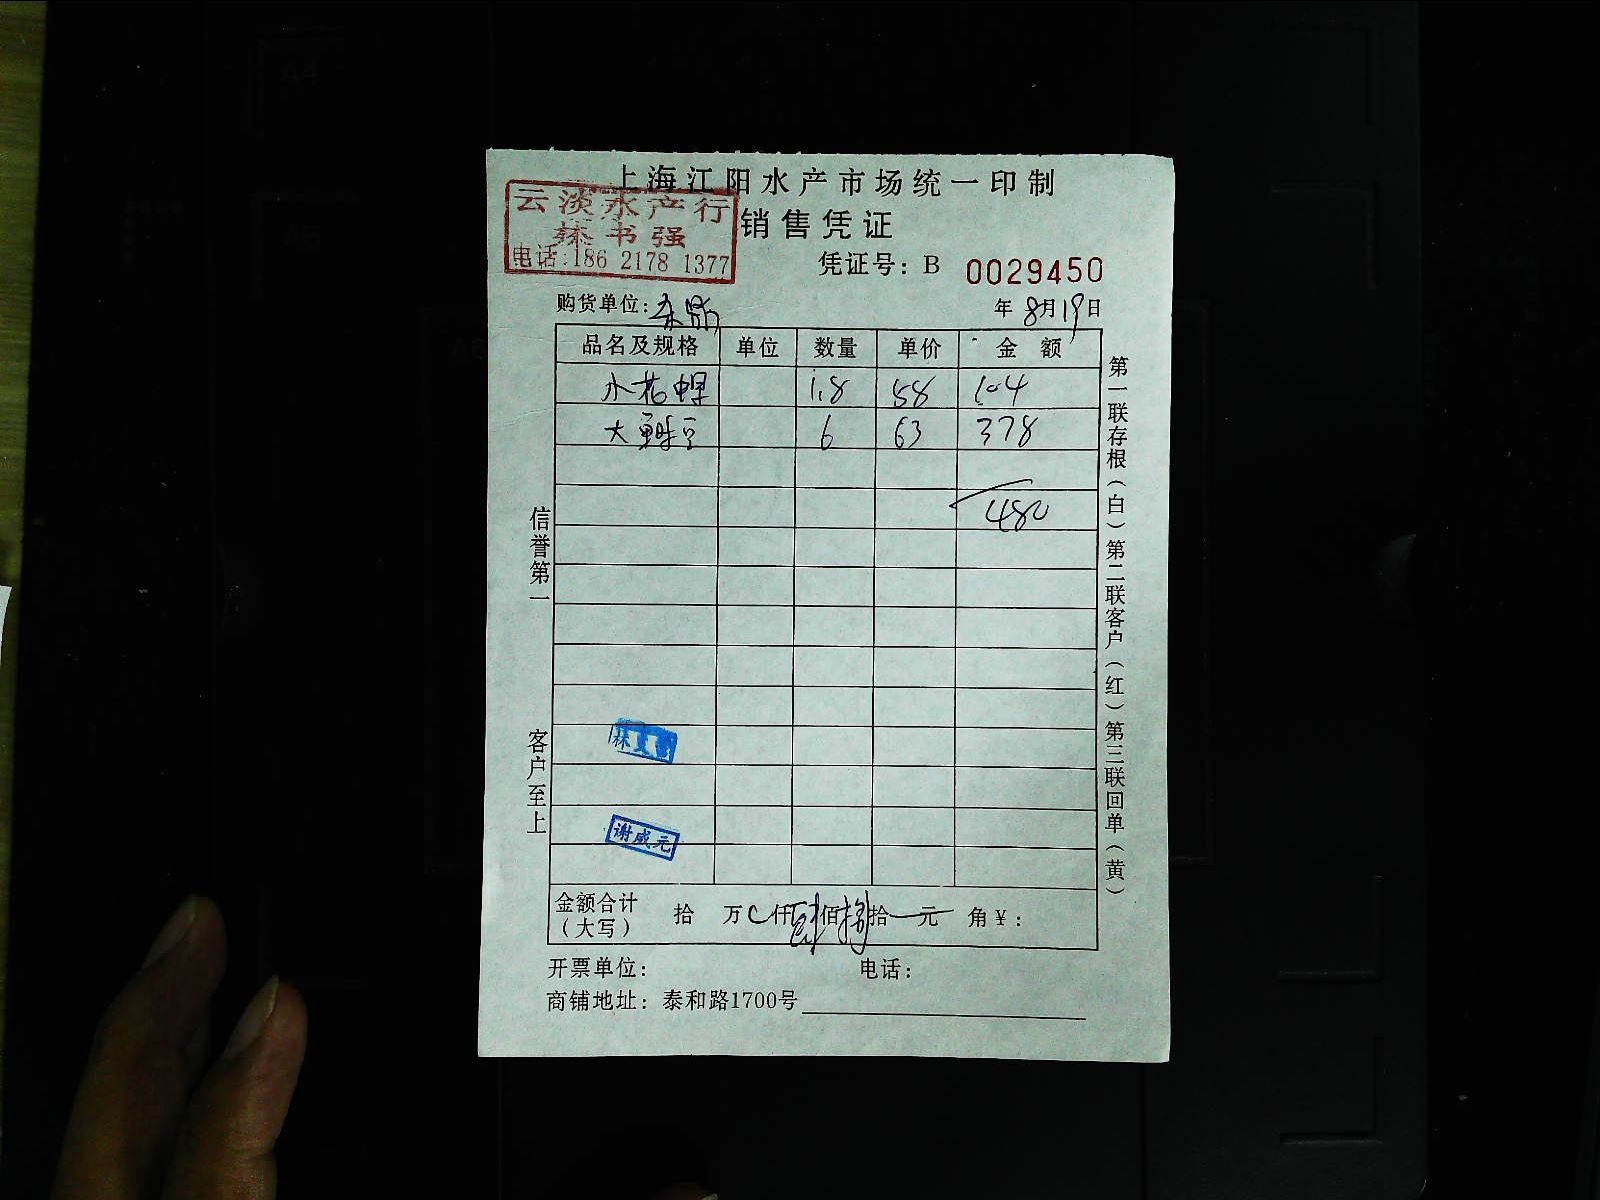 上海江阳水产市场统一印制
云淡水产行
林书强
电话:186 2178 1377
销售凭证
凭证号：B 0029450
购货单位：
年 8月19日
品名及规格 单位 数量 单价 金额
水花 1.8 58 104
大 6 63 378
480
信誉第一
客户至上
谢成元
金额合计（大写） 拾 万 仟肆佰捌拾 元 角¥：
开票单位： 电话：
商铺地址：泰和路1700号
第一联存根（白）第二联客户（红）第三联回单（黄）